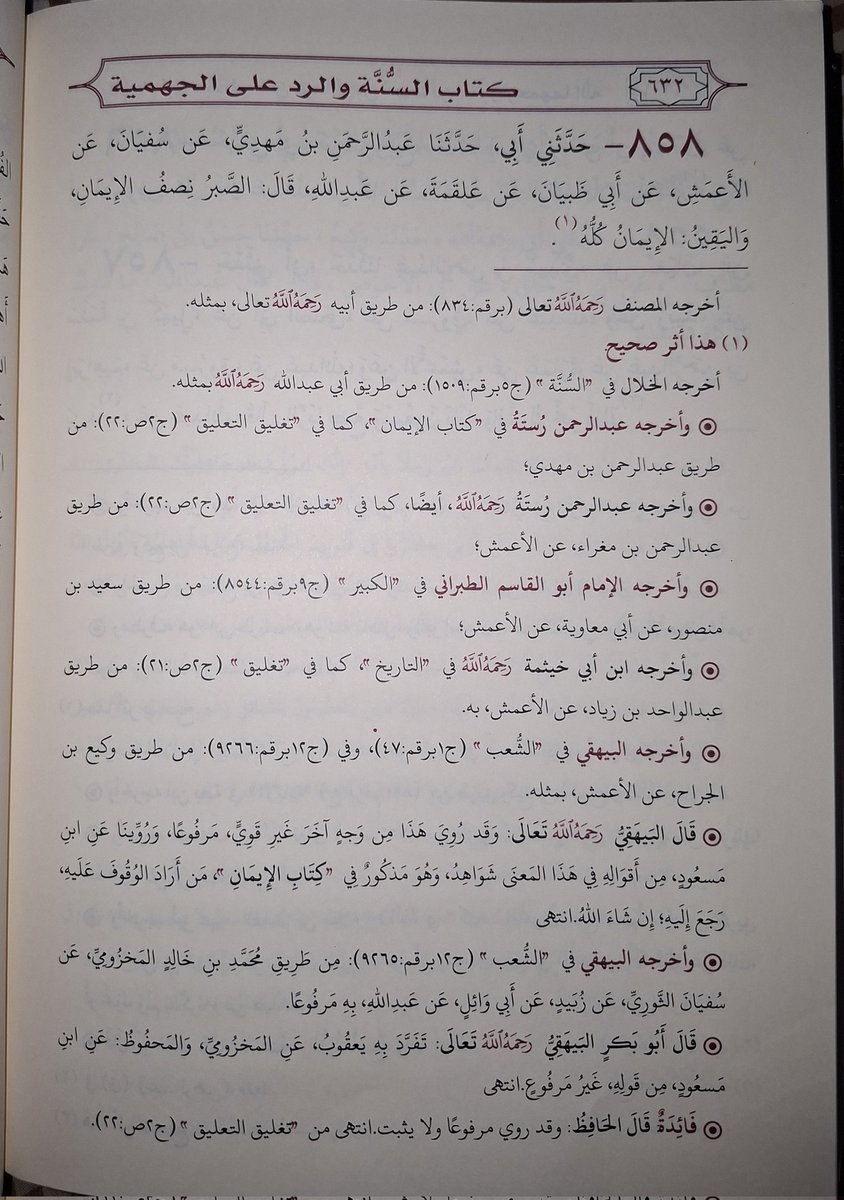 ٦٣٢
كتاب السُّنَّة والرد على الجهمية
٨٥٨- حَدَّثَنِي أَبِي، حَدَّثَنَا عَبدُالرَّحمَنِ بنُ مَهدِيٍّ، عَن سُفيَانَ، عَن
الأَعمَشِ، عَن أَبِي ظَبيَانَ، عَن عَلقَمَةَ، عَن عَبدِاللهِ، قَالَ: الصَّبرُ نِصفُ الإِيمَانِ،
وَاليَقِينُ: الإِيمَانُ كُلُّهُ(١).
أخرجه المصنف رَحِمَهُ ٱللَّهُ تعالى (برقم:٨٣٤): من طريق أبيه رَحِمَهُ ٱللَّهُ تعالى، بمثله.
(١) هذا أثر صحيح.
أخرجه الخلال في "السُّنَّة" (ج٥برقم:١٥٠٩): من طريق أبي عبدالله رَحِمَهُ ٱللَّهُ بمثله.
◉ وأخرجه عبدالرحمن رُستَةُ في "كتاب الإيمان"، كما في "تغليق التعليق" (ج٢ص:٢٢): من
طريق عبدالرحمن بن مهدي؛
◉ وأخرجه عبدالرحمن رُستَةُ رَحِمَهُ ٱللَّهُ، أيضًا، كما في "تغليق التعليق" (ج٢ص:٢٢): من طريق
عبدالرحمن بن مغراء، عن الأعمش؛
◉ وأخرجه الإمام أبو القاسم الطبراني في "الكبير" (ج٩برقم:٨٥٤٤): من طريق سعيد بن
منصور، عن أبي معاوية، عن الأعمش؛
◉ وأخرجه ابن أبي خيثمة رَحِمَهُ ٱللَّهُ في "التاريخ"، كما في "تغليق" (ج٢ص:٢١): من طريق
عبدالواحد بن زياد، عن الأعمش، به.
◉ وأخرجه البيهقي في "الشُّعب" (ج١برقم:٤٧)، وفي (ج١٢برقم:٩٢٦٦): من طريق وكيع بن
الجراح، عن الأعمش، بمثله.
◉ قَالَ البَيهَقِيُّ رَحِمَهُ ٱللَّهُ تَعَالَى: وَقَد رُوِيَ هَذَا مِن وَجهٍ آخَرَ غَيرِ قَوِيٍّ، مَرفُوعًا، وَرُوِّينَا عَنِ ابنِ
مَسعُودٍ، مِن أَقوَالِهِ فِي هَذَا المَعنَى شَوَاهِدُ، وَهُوَ مَذكُورٌ فِي "كِتَابِ الإِيمَانِ"، مَن أَرَادَ الوُقُوفَ عَلَيهِ،
رَجَعَ إِلَيهِ؛ إِن شَاءَ اللهُ.انتهى
◉ وأخرجه البيهقي في "الشُّعب" (ج١٢برقم:٩٢٦٥): مِن طَرِيقِ مُحَمَّدِ بنِ خَالِدٍ المَخزُومِيِّ، عَن
سُفيَانَ الثَّورِيِّ، عَن زُبَيدٍ، عَن أَبِي وَائِلٍ، عَن عَبدِاللهِ، بِهِ مَرفُوعًا.
◉ قَالَ أَبُو بَكرٍ البَيهَقِيُّ رَحِمَهُ ٱللَّهُ تَعَالَى: تَفَرَّدَ بِهِ يَعقُوبُ، عَنِ المَخزُومِيِّ، وَالمَحفُوظُ: عَنِ ابنِ
مَسعُودٍ، مِن قَولِهِ، غَيرُ مَرفُوعٍ.انتهى
◉ فَائِدَةٌ قَالَ الحَافِظُ: وقد روي مرفوعًا ولا يثبت.انتهى من "تغليق التعليق" (ج٢ص:٢٢).